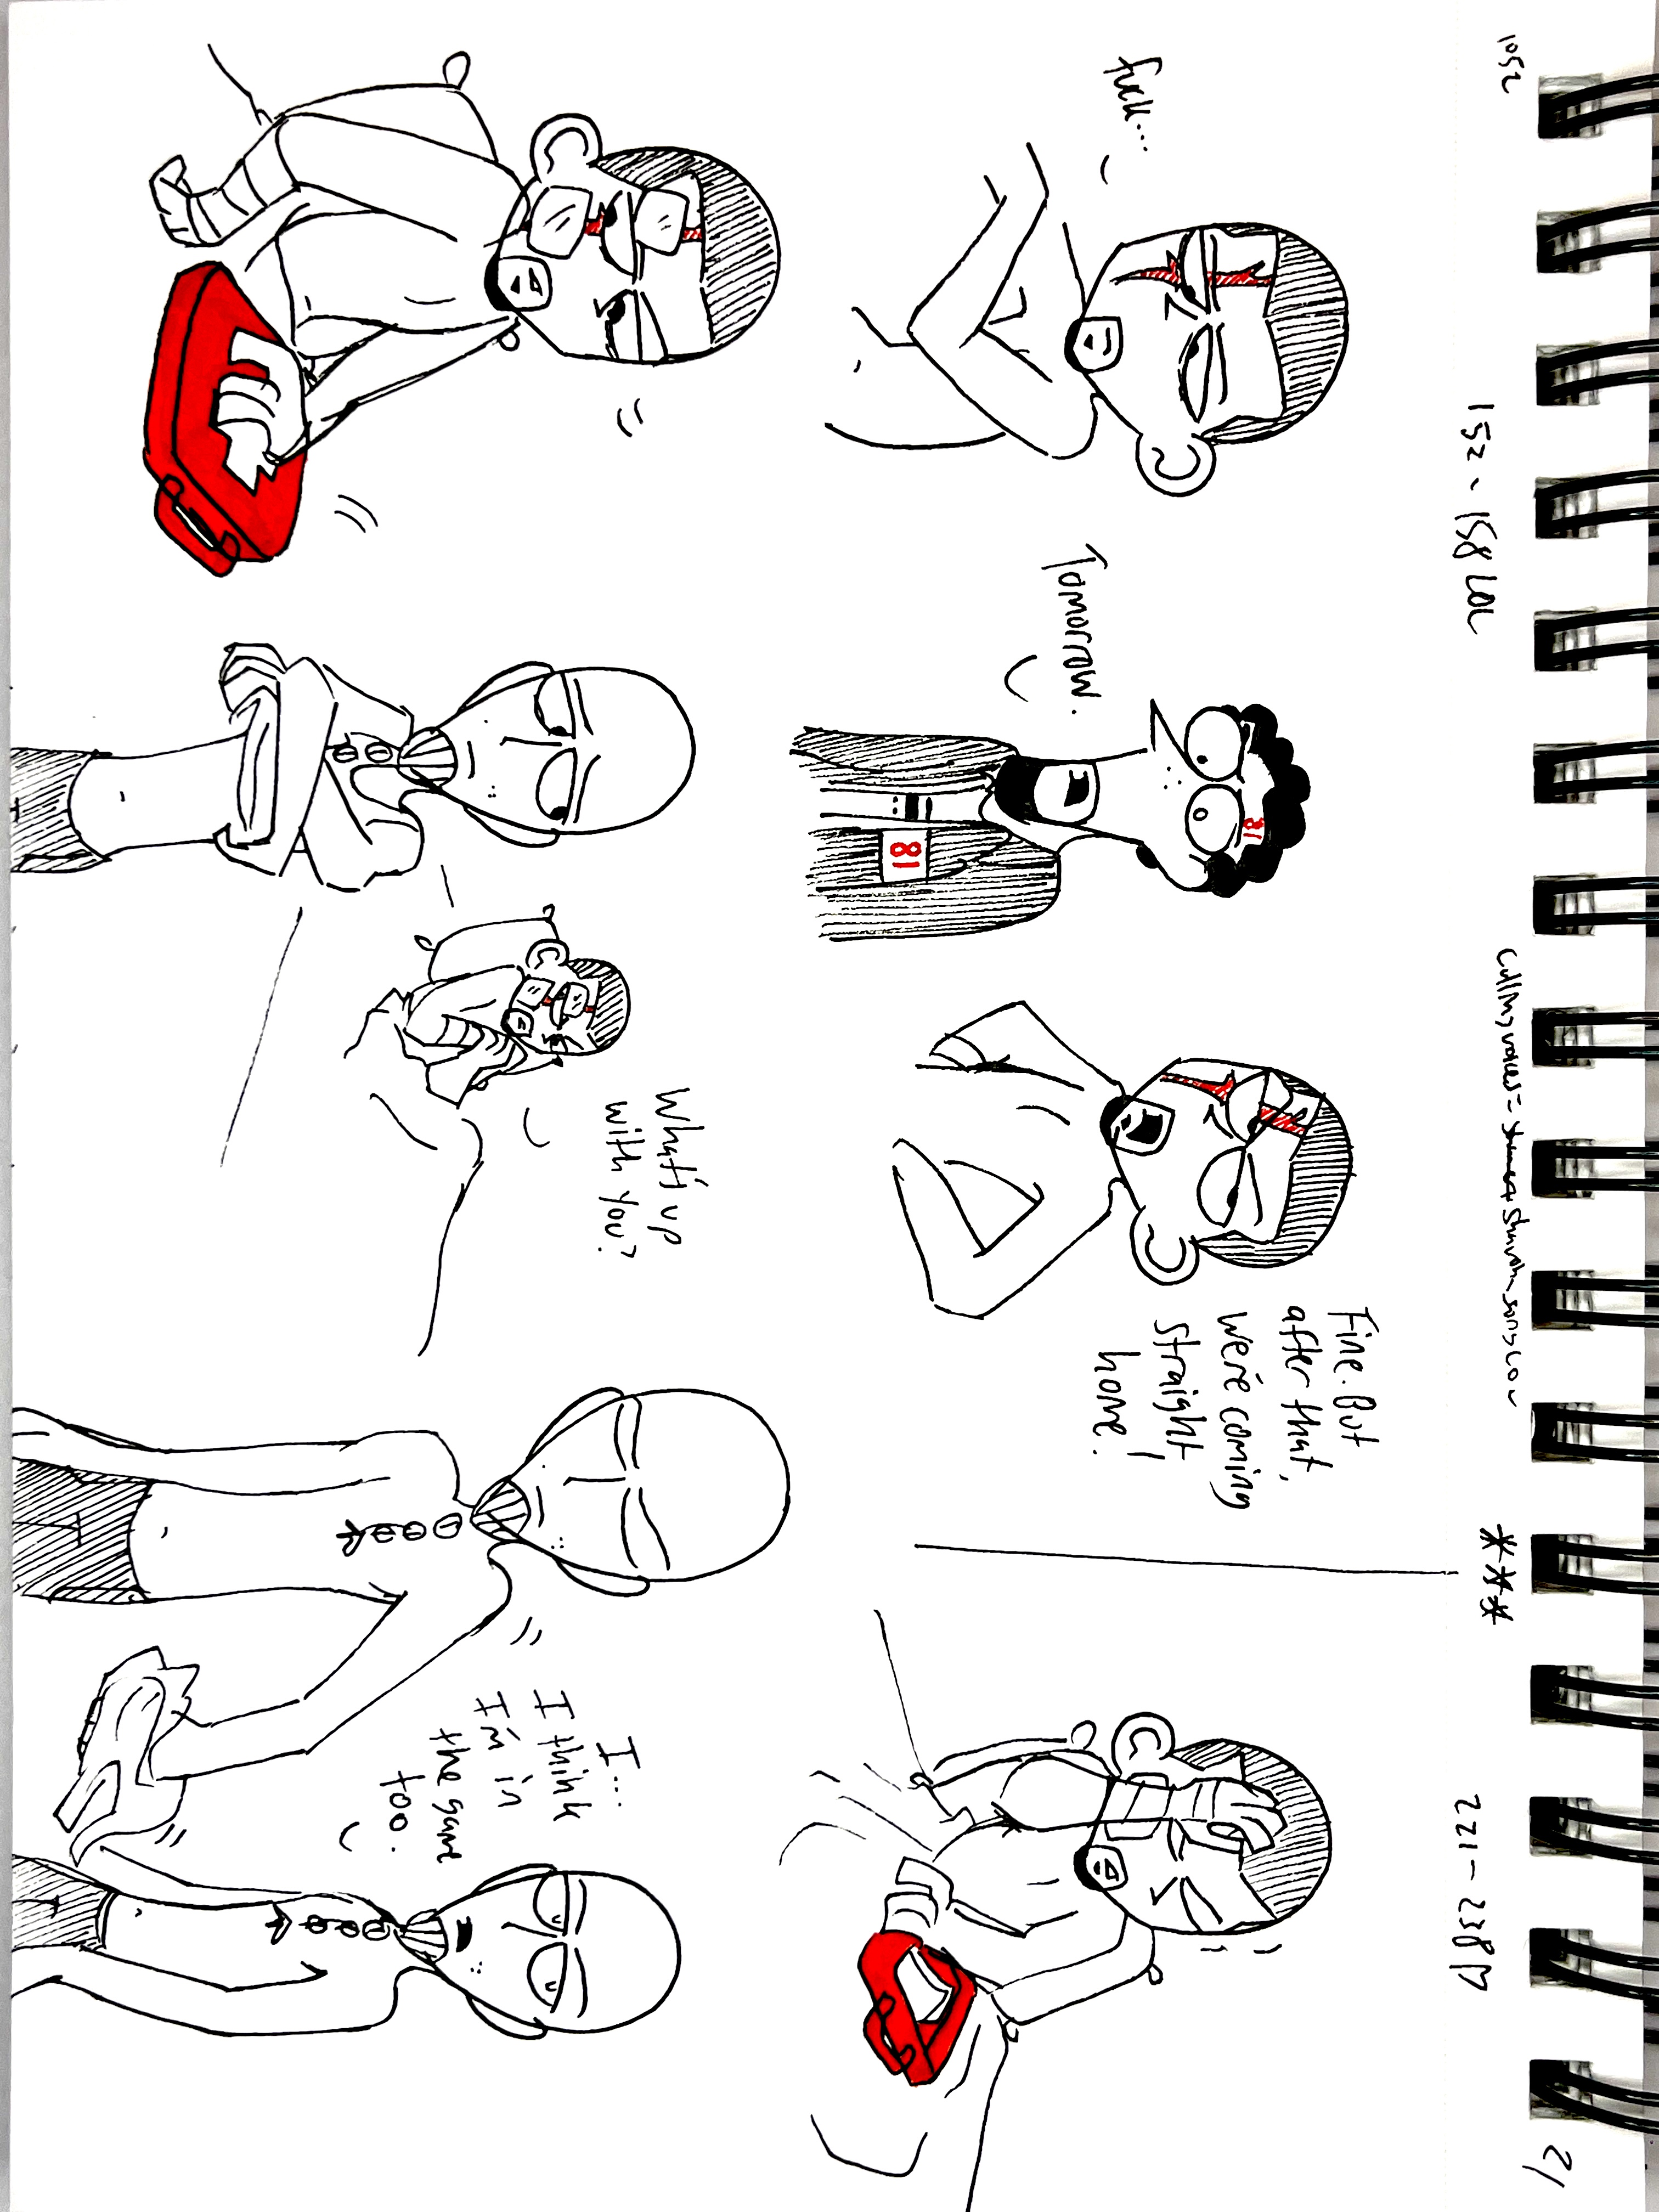 21
1052
152-158 LOL
***
221-238
fuck...
Tomorrow.
81
81
Fine. But
after that,
we're coming
straight
home!
What's up
with you?
I...
I think
I'm in
the game
too.